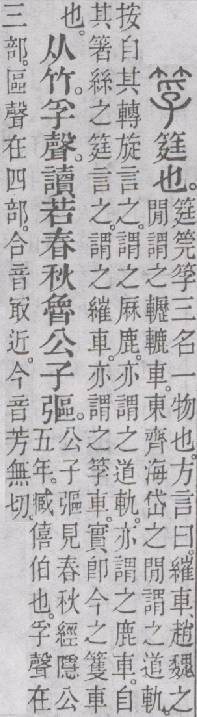 筟筳也。筳筦筟三名一物也。方言曰。繀車、趙魏之
閒謂之轣轆車。東齊海岱之閒謂之道軌、
按自其轉旋言之。謂之厤鹿。亦謂之道軌。亦謂之鹿車。自
其箸絲之筳言之。謂之繀車。亦謂之筟車。實卽今之籰車
也。从竹。孚聲。讀若春秋魯公子彄。公子彄見春秋經隱公
五年。臧僖伯也。孚聲在
三部。區聲在四部。合音冣近。今音芳無切。